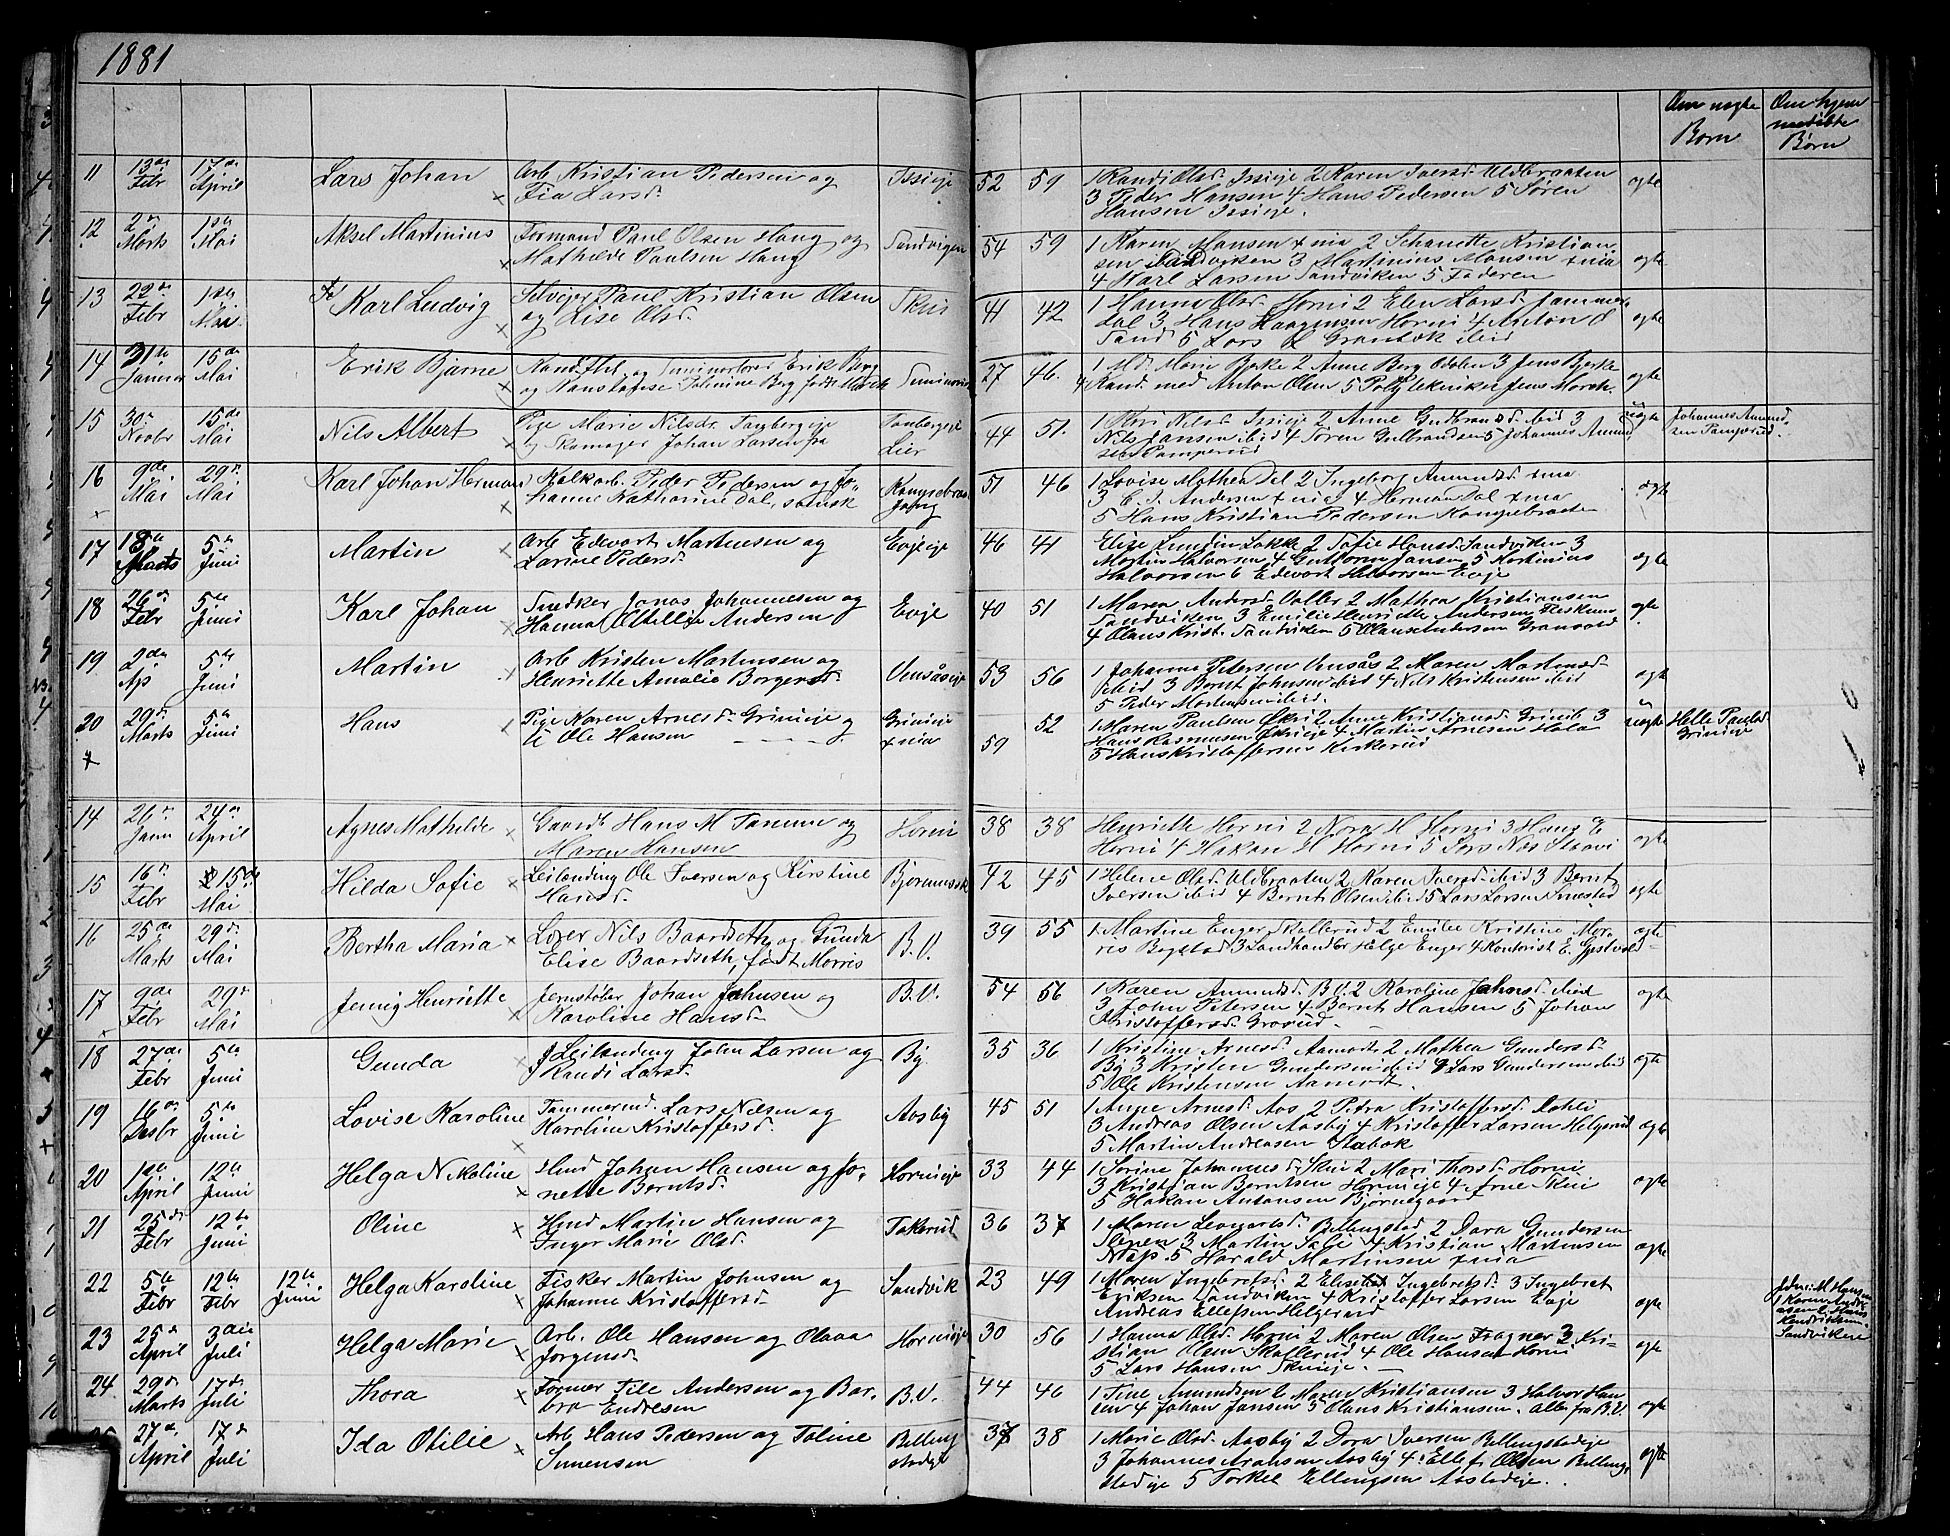 1881
Om uægte Børn
Om hjemmedøbte Børn
11 13de Febr 17de April Lars Johan Arb Kristian Pedersen og
Tia Larsd. Issieje 52 59 1 Randi Olsd. Issieje 2 Karen Iversd. Uldbraaten
3 Peder Hansen 4 Hans Pedersen 5 Søren
Hansen Issieje. ægte
12 2den Marts 1ste Mai Aksel Martinius Formand Paul Olsen Haug og
Mathilde Paulsen Haug Sandvigen 54 59 1 Karen Hansen 2 Schanette Kristian
sen Sandviken 3 Martinius Hansen
4 Karl Larsen Sandviken 5 Faderen ægte
13 22de Febr 1ste Mai Karl Ludvig Selvejer Paul Kristian Olsen
og Lise Olsd. Skui 41 42 1 Hanna Olsd. Horni 2 Elen Larsd. Jammer
dal 3 Hans Horni 4 Anton O
Sand 5 Lars ibid ægte
14 31te Januar 15de Mai Erik Bjarne Kand. og Seminarlærer Erik Berg
og Seminariet 27 46. 1 Md. Marie Bjerke 2 Anne Berg 3 Jens Bjerke
4 Kand. med Anton Olsen 5 Polytekniker Jens ægte
15 30te Novbr 15de Mai Nils Albert Pige Marie Nilsdr. Tanbergeje
og Skomager Johan Larsen fra Tanbergeje
Lier 44 51. 1 Kari Nilsd. Issieje 2 Anne Gudbrandsd. ibid 3
Nils Jansen ibid 4 Søren Gulbrandsen 5 Johannes Amund
sen Pamperud uægte Johannes Amund
sen Pamperud.
16 9de Mai 29de Mai Karl Johan Herman Kalkarb. Peder Pedersen og Jo-
hanne Katharine Dal, svensk 51 46 1 Lovise Mathea Dal 2 Ingeborg Amundsd.
3 Andersen 4 Herman Dal
5 Hans Kristian Pedersen ægte
17 18de Marts 5te Juni Martin Arb Edevart Martinsen og
Larine Pedersd. Evjeeje 46 41 Elise Lundin Løkke 2 Sofie Hansd. Sandviken 3
Martin Halvorsen 4 Guttorm Jansen 5 Martinius
Halvorsen 6 Edevart Halvorsen Evje ægte
18 26de Febr 5te Juni Karl Johan Snedker Jonas Johannesen og
Hanna Otillie Andersen Evje 40 51 1 Maren Andersd. Valler 2 Mathea Kristiansen
Sandviken 3 Emilie Henriette Andersen
4 Olaus Krist. Sandviken 5 Olaus Andersen ægte
19 2den Ap 5te Juni Martin Arb Kristen Martinsen og
Henriette Amalie Borgersd. 53 56 1 Johanne Petersen 2 Maren Martinsd.
ibid 3 Bernt Johnsen ibid 4 Nils Kristensen ibid
5 Peder Mortensen ibid. ægte
20 29de Marts 5te Juni Hans Pige Karen Arnesd. Grinieje og
U Ole Hansen Grinieje 59 52 1 Maren Paulsen Økri 2 Anne Kristiansd. Grinieje 3
Hans Rasmussen Økrieje 4 Martin Arnesen Hola
5 Hans Kristoffersen Kirkerud uægte Helle Paulsd.
Grinieje
14 26de Janu 24de April Agnes Mathilde Gaardb Hans M Tanum og
Maren Hansen Horni 38 38 Henriette Horni 2 Nora H Horni 3 Hans E
Horni 4 Hakan H Horni 5 Lars Nes Staavi ægte
15 16de Febr 15de Mai Hilda Sofie Leilænding Ole Iversen og Kirstine
Hansd. 42 45 1 Helene Olsd. Uldbraaten 2 Karen Iversd. ibid 3 Bernt
Iversen ibid 4 Bernt Olsen ibid 5 Lars Larsen ægte
16 25de Marts 29de Mai Bertha Maria Løser Nils Baardseth og Gunda
Elise Baardseth, født Morris B.V. 39 55 1 Martine Enger Skellerud 2 Emilie Kristine Mor-
ris Bogstad 3 Landhandler Helge Enger 4 Kontorist E. ægte
17 9de Febr 29de Mai Jenny Henriette Jernstøber Johan Johnsen og
Karoline Hansd. B.V. 54 56 1 Karen Amundsd. B.V. 2 Karoline Johnsd. ibid
3 John Petersen 4 Bernt Hansen 5 Johan
Kristoffersd. Grorud. ægte
18 27de Febr 5te Juni Gunda Leilænding John Larsen og
Randi Larsd. By 35 36 1 Kristine Arnesd. Aamodt 2 Mathea Gundersd.
By 3 Kristen Gundersen ibid 4 Lars Gundersen ibid
5 Ole Kristensen Aamodt. ægte
19 16de Desbr 5te Juni Lovise Karoline Tømmermd. Lars Nilsen og
Karoline Kristoffersd. Aasby 45 51 1 Anne Arnesd. Aas 2 Petra Kristoffersd. Dahli
3 Andreas Olsen Aasby 4 Kristoffer Larsen Helgerud
5 Martin Andreasen Stabæk ægte
20 1ste April 12te Juni Helga Nikoline Hmd Johan Hansen og Jo-
nette Berntsd. Hornieje 33 44 1 Sorine Johannesd. Skui 2 Mari Thorsd. Horni
3 Kristian Berntsen Hornieje 4 Arne Skui
5 Hakan Antonsen Bjørnegaard ægte
21 25de Febr 12te Juni Oline Hmd Martin Hansen og
Inger Marie Olsd. Takerud 36 37 1 Maren Leonartsd. Billingstad 2 Dora Gundersen
Slepen 3 Martin 4 Kristiane Martinsen
5 Harald Martinsen ægte
22 5te Febr 12te Febr 12te Juni Helga Karoline Fisker Martin Johnsen og
Johanne Kristoffersd. Sandvik 23 49 1 Maren Ingebretsd. 2 Elisebet Ingebretsd. 3 Ingebret
Eriksen Sandviken 4 Kristoffer Larsen Evje
Andreas Ellefsen Helgerud ægte M Hansen
1 Karen Andre
asen 2 Hans
Hendriksen
Sandviken
23 25de April 3die Juli Helga Marie Arb. Ole Hansen og Olava
Jørgensd. Hornieje 30 56 1 Hanna Olsd. Horni 2 Maren Olsen Fragner 3 Kri-
stian Olsen Skollerud 4 Ole Hansen Horni
5 Lars Hansen Skuieje. ægte
24 29de Marts 17de Juli Thora Former Tile Andersen og Bar-
bra Endresen B.V. 44 46 1 Tine Amundsen 2 Maren Kristiansen 3 Halvor Han
sen 4 Johan Jansen 5 Olaus Kristiansen. Alle fra B.V. ægte
27de April 17de Juli Ida Otilie Arb Hans Pedersen og Toline
Simensen Billing
stadeje 37 38 1 Marie Olsd. Aasby 2 Dora Iversen Billingstadeje
3 Johannes Aasby 4 Ellef Olsen Billing
stadeje 5 Torkel Ellingsen Aastadeje. ægte